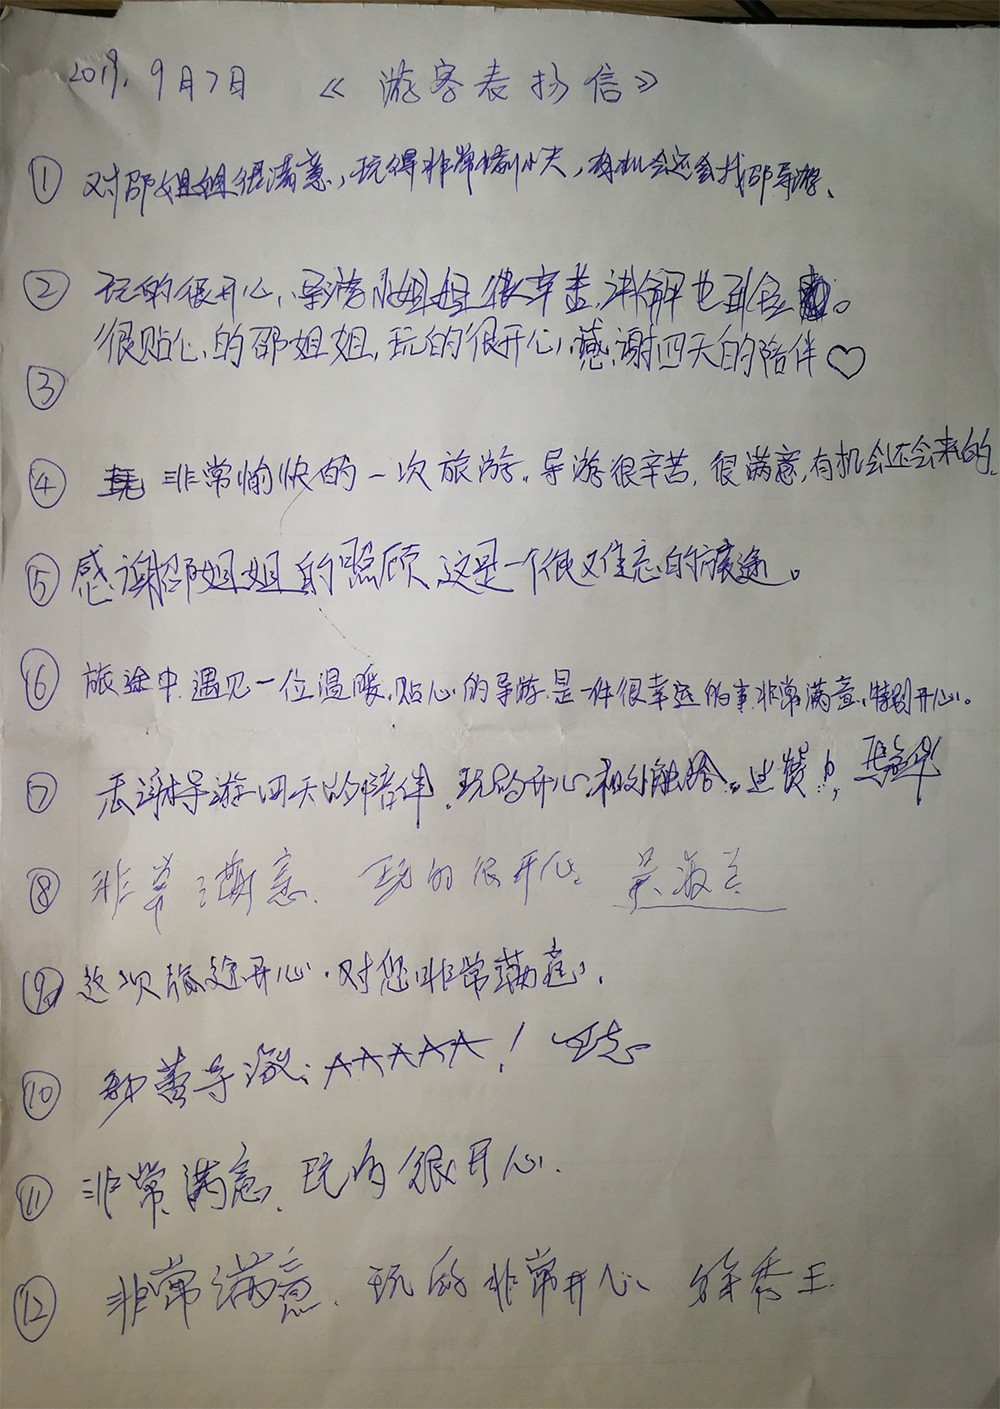 2019, 9月7日 《游客表扬信》
① 对邵姐姐很满意,玩得非常愉快,有机会还会找邵导游、
② 玩的很开心、导游小姐姐很辛苦,讲解也到位。
很贴心的邵姐姐,玩的很开心,感谢四天的陪伴♡
③
④ 非常愉快的一次旅游。导游很辛苦,很满意,有机会还会来的.
⑤ 感谢邵姐姐的照顾,这是一个很难忘的旅途。
⑥ 旅途中遇见一位温暖、贴心的导游,是一件很幸运的事.非常满意、特别开心。
⑦ 感谢导游四天的陪伴.玩的开心
⑧ 非常满意、玩的很开心
⑨ 这次旅途开心.对您非常满意.
⑩ 导游: ☆☆☆☆☆!
⑪ 非常满意、玩的很开心.
⑫ 非常满意、玩的非常开心、徐秀玉